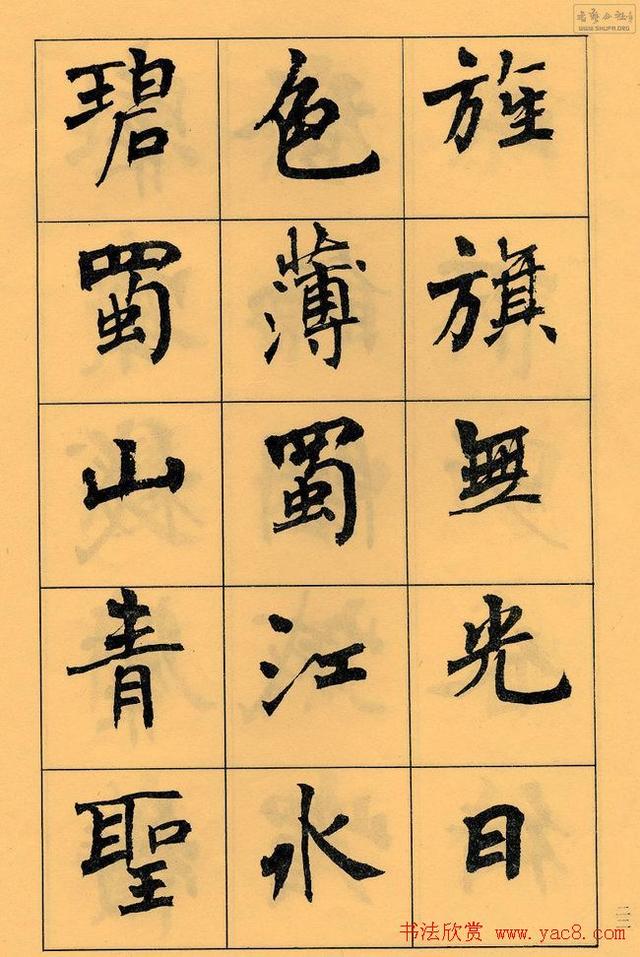 旌旗無光日
色薄蜀江水
碧蜀山青聖
二二
书法欣赏 www.yac8.com
WWW.SHUFA.ORG